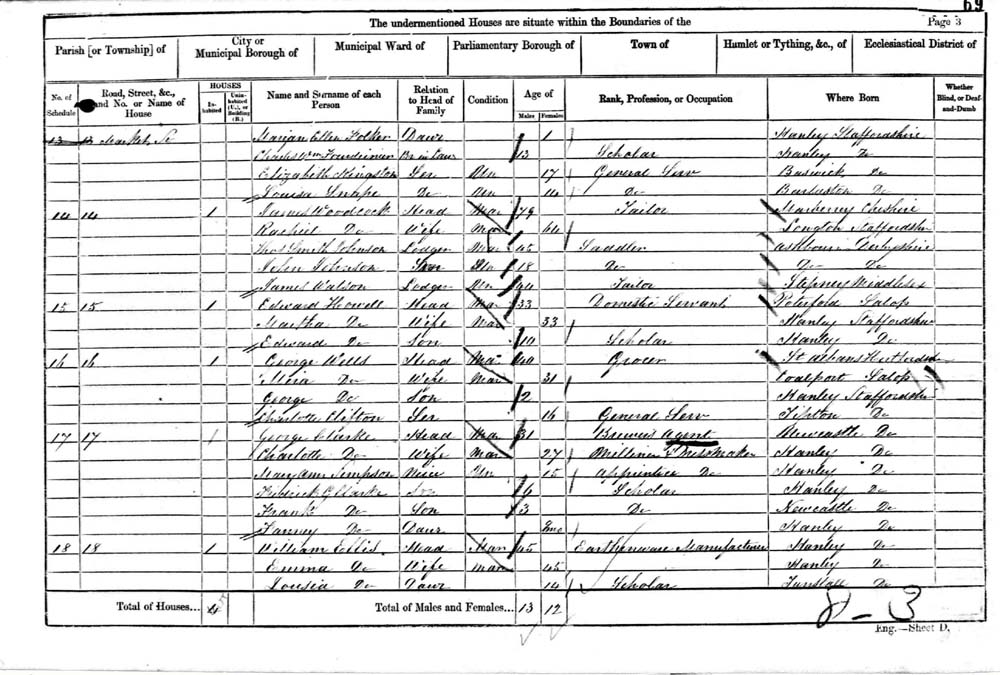 69
The undermentioned Houses are situate within the Boundaries of the
Page 3
Parish [or Township] of
City or Municipal Borough of
Municipal Ward of
Parliamentary Borough of
Town of
Hamlet or Tything, &c., of
Ecclesiastical District of
No. of Schedule
Road, Street, &c., and No. or Name of House
HOUSES
In-habited
Unin-habited (U.), or Building (B.)
Name and Surname of each Person
Relation to Head of Family
Condition
Age of
Males
Females
Rank, Profession, or Occupation
Where Born
Whether Blind, or Deaf-and-Dumb
13 13 Market St Marian Ellen Daur 1 Hanley Staffordshire
Charles Wm Br in Law 13 Scholar Hanley Do
Elizabeth Kingston Ser Un 17 General Serv Baswick Do
Louisa Snape Do Un 14 Do Barlaston Do
14 14 1 James Woodcock Head Mar 79 Tailor Cheshire
Rachel Do Wife Mar 64 Longton Staffordsh
Thos Smith Johnson Lodger Mar 45 Saddler Ashbourn Derbyshire
John Johnson Son Un 18 Do Do Do
James Watson Lodger Un Tailor Stepney Middlesex
15 15 1 Edward Howell Head Mar 33 Domestic Servant Salop
Martha Do Wife Mar 33 Hanley Staffordshire
Edward Do Son 10 Scholar Hanley Do
16 16 1 George Wells Head Mar 40 Grocer St Albans
Do Wife Mar 31 Coalport Salop
George Do Son 2 Hanley Staffordshr
Charlotte Clifton Ser 16 General Serv Tipton Do
17 17 1 George Clarke Head Mar 31 Brewers Agent Newcastle Do
Charlotte Do Wife Mar 27 Milliner & Dressmaker Hanley Do
Mary Ann Simpson Niece Un 15 Apprentice Do Hanley Do
Clarke Son 6 Scholar Hanley Do
Frank Do Son 3 Do Newcastle Do
Fanney Do Daur 2mo Hanley Do
18 18 1 William Ellis Head Mar 45 Earthenware Manufacturer Hanley Do
Emma Do Wife Mar 45 Hanley Do
Lousia Do Daur 14 Scholar Tunstall Do
Total of Houses...
Total of Males and Females... 13 12
8 - 3
Eng.—Sheet D.